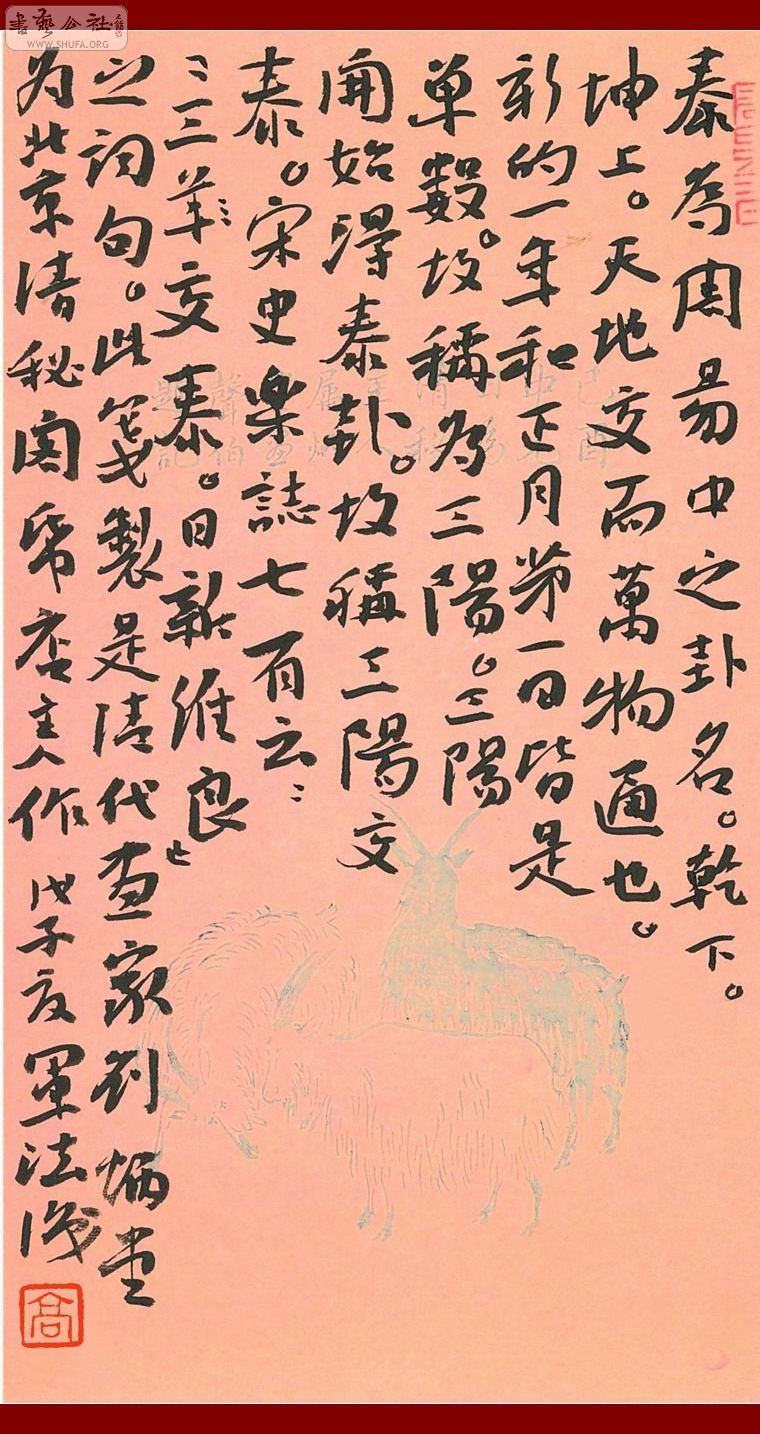 書藝公社
WWW.SHUFA.ORG
泰為周易中之卦名。乾下。
坤上。天地交而萬物通也。
新的一年和正月第一日皆是
单數。故稱為三陽。三陽
開始得泰卦。故稱三陽交
泰。宋史樂誌七有云：
三羊交泰。日新維良
之詞句。此箋製是清代画家刘炳堂
为北京清秘阁纸店主人作 戊子友軍法识
高